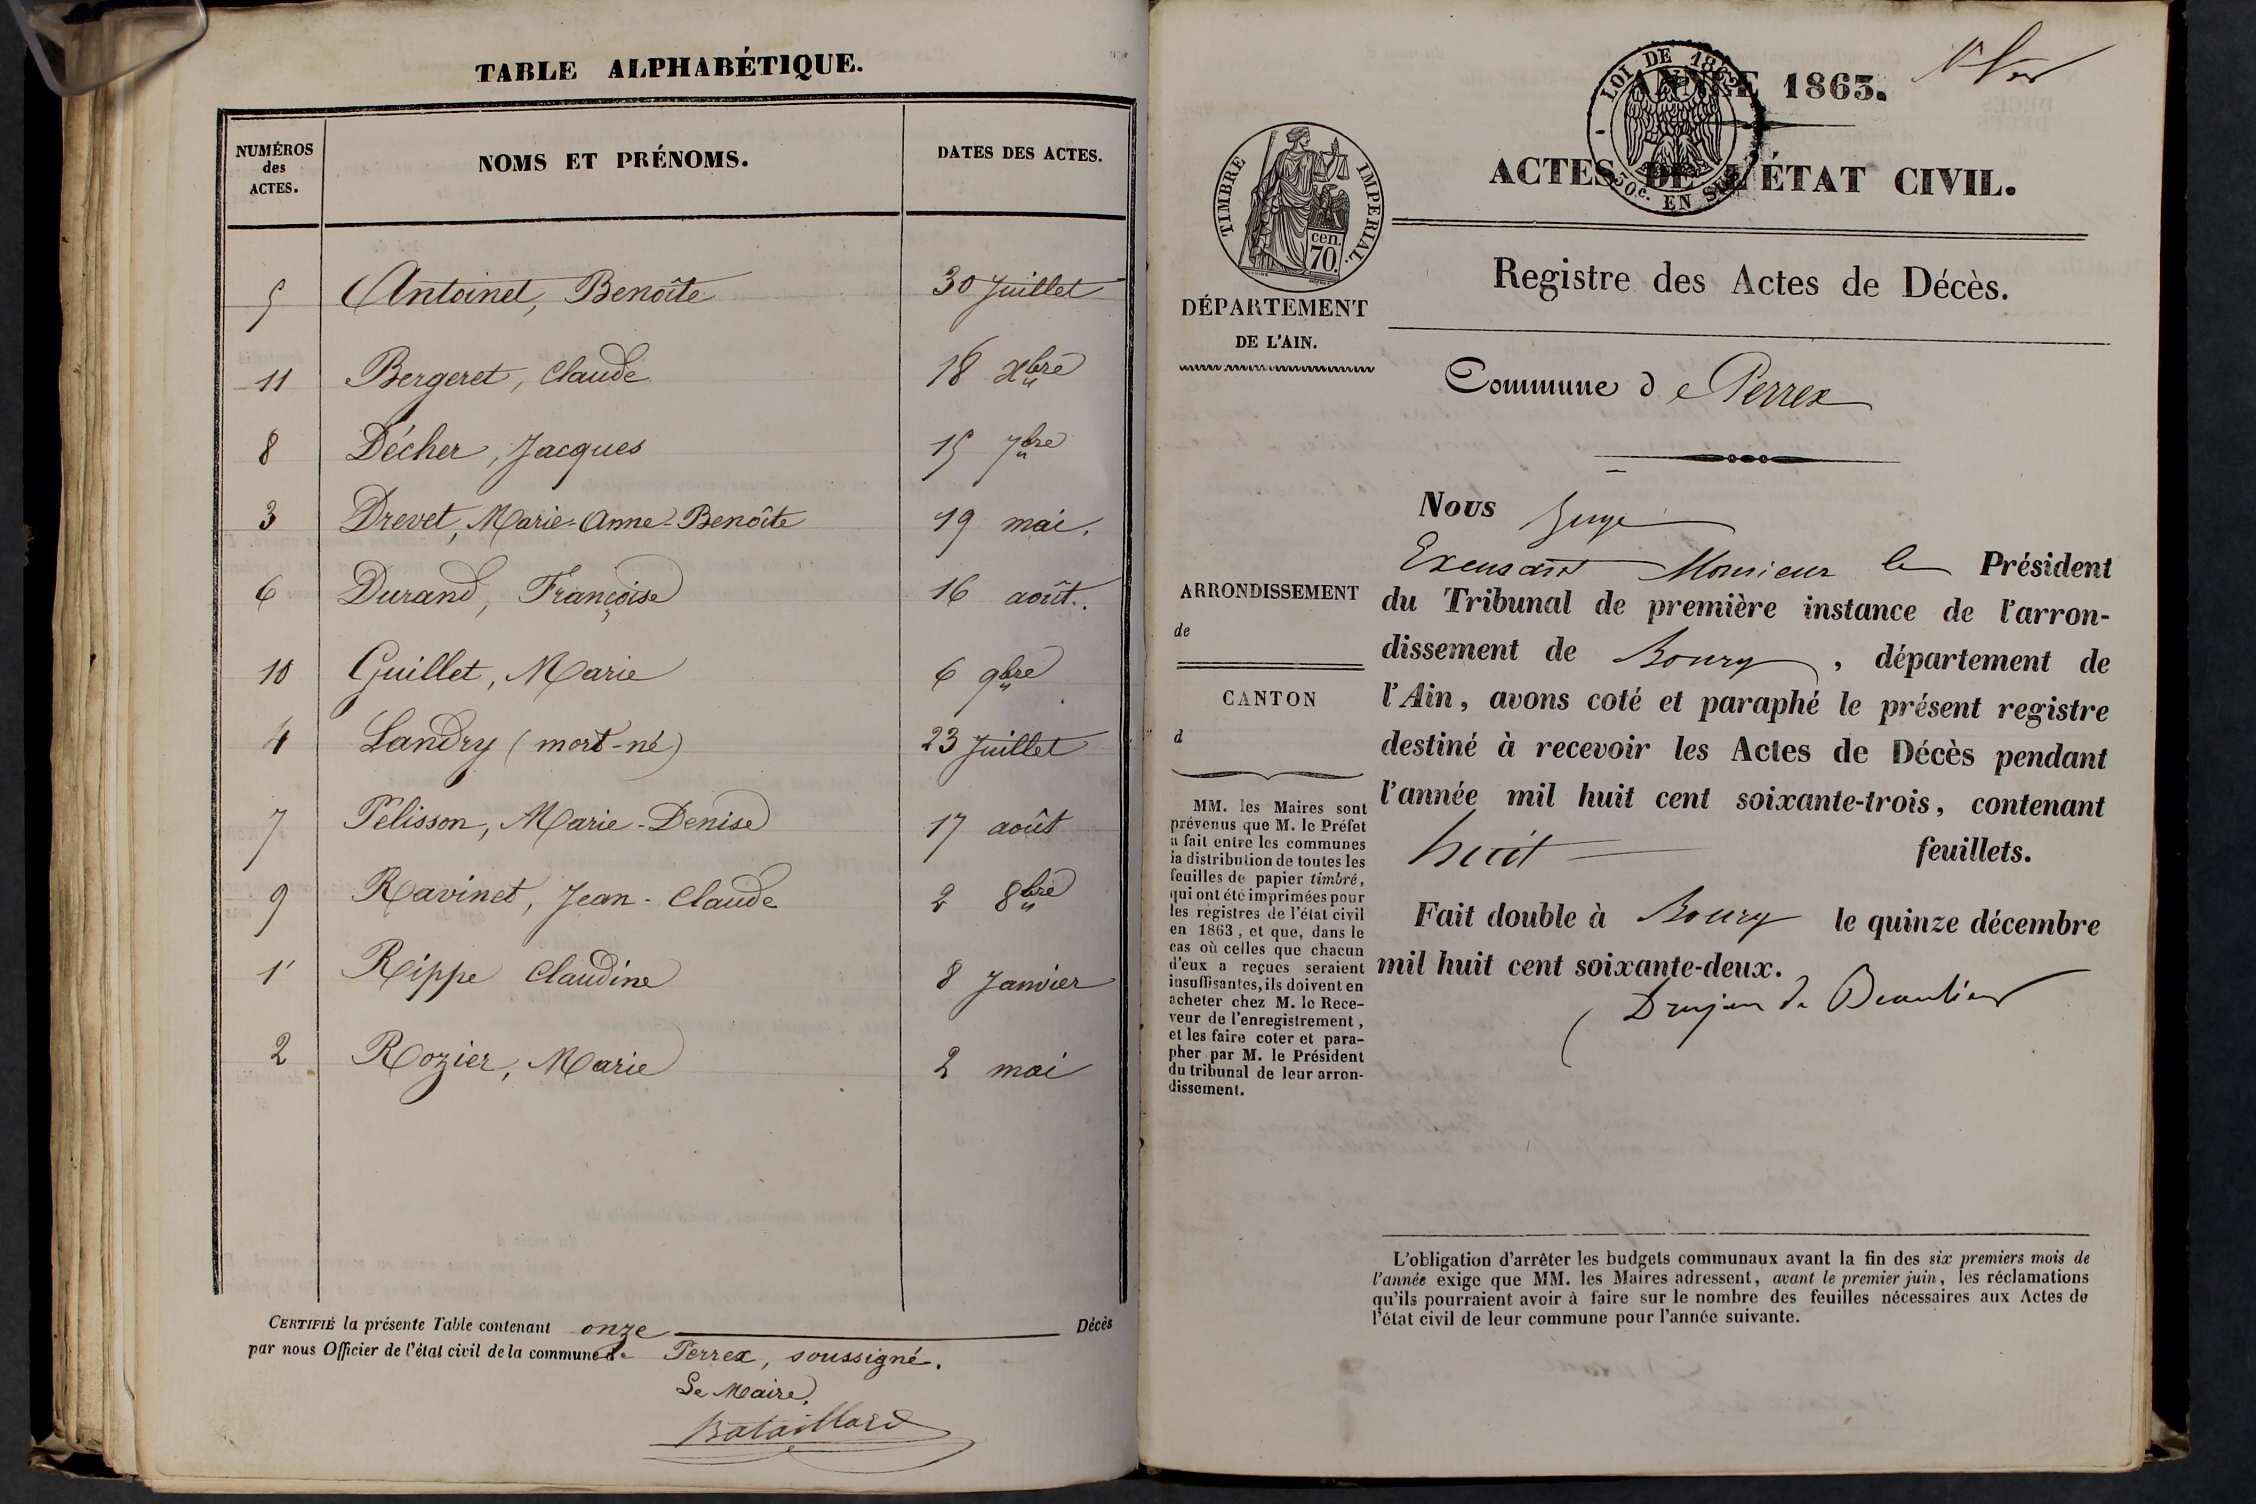 TABLE ALPHABÉTIQUE.
NUMÉROS des ACTES. NOMS ET PRÉNOMS. DATES DES ACTES.
5 Antoinet, Benoîte 30 Juillet
11 Bergeret, Claude 18 Xbre
8 Décher, Jacques 15 7bre
3 Drevet, Marie-Anne-Benoîte 19 mai.
6 Durand, Françoise 16 août.
10 Guillet, Marie 6 9bre
4 Landry (mort-né) 23 Juillet
7 Pélisson, Marie-Denise 17 août
9 Ravinet, Jean-Claude 2 8bre
1 Rippe Claudine 8 Janvier
2 Rozier, Marie 2 mai
CERTIFIÉ la présente Table contenant onze Décès
par nous Officier de l'état civil de la commune de Perrex, soussigné.
Le Maire,
Bataillard
LOI DE 1862
50c. EN SUS
ANNÉE 1863.
TIMBRE IMPERIAL.
cen.
70.
ACTES DE L'ÉTAT CIVIL.
Registre des Actes de Décès.
DÉPARTEMENT
DE L'AIN.
Commune de Perrex
ARRONDISSEMENT
de
CANTON
d
MM. les Maires sont
prévenus que M. le Préfet
a fait entre les communes
la distribution de toutes les
feuilles de papier timbré,
qui ont été imprimées pour
les registres de l'état civil
en 1863, et que, dans le
cas où celles que chacun
d'eux a reçues seraient
insuffisantes, ils doivent en
acheter chez M. le Rece-
veur de l'enregistrement,
et les faire coter et para-
pher par M. le Président
du tribunal de leur arron-
dissement.
Nous Juge
Excusant Monsieur le Président
du Tribunal de première instance de l'arron-
dissement de Bourg, département de
l'Ain, avons coté et paraphé le présent registre
destiné à recevoir les Actes de Décès pendant
l'année mil huit cent soixante-trois, contenant
huit feuillets.
Fait double à Bourg le quinze décembre
mil huit cent soixante-deux.
Drujon de Beaulieu
L'obligation d'arrêter les budgets communaux avant la fin des six premiers mois de
l'année exige que MM. les Maires adressent, avant le premier juin, les réclamations
qu'ils pourraient avoir à faire sur le nombre des feuilles nécessaires aux Actes de
l'état civil de leur commune pour l'année suivante.